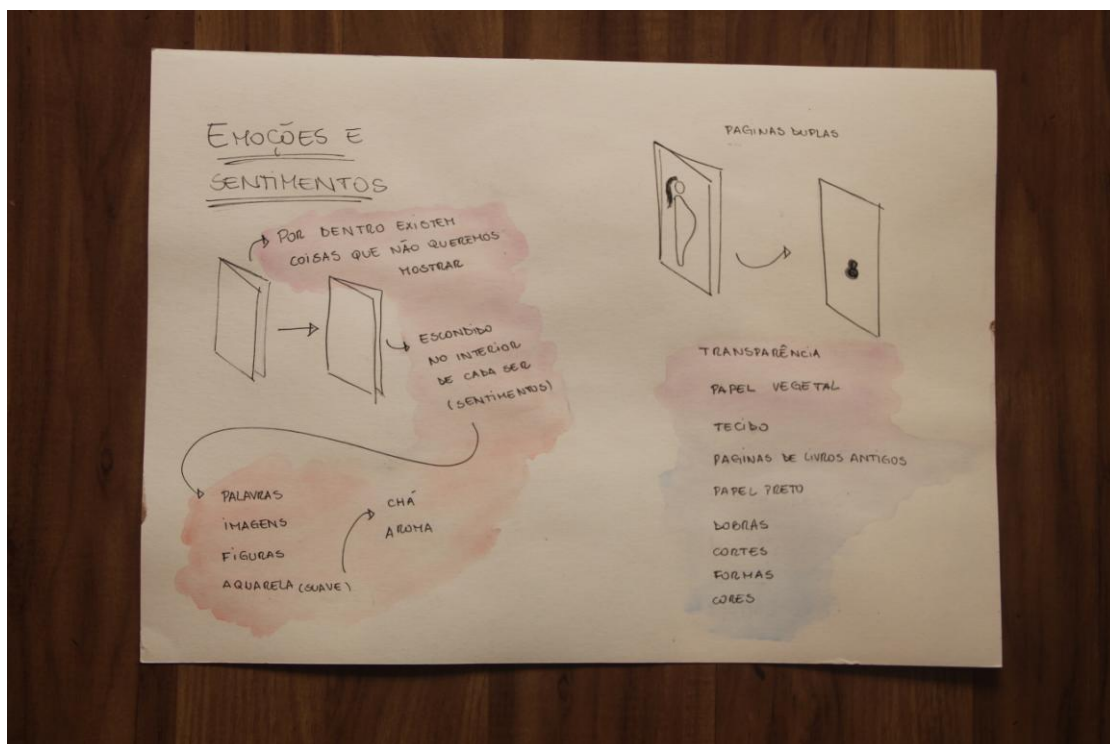 EMOÇÕES E
SENTIMENTOS
POR DENTRO EXISTEM
COISAS QUE NÃO QUEREMOS
MOSTRAR
ESCONDIDO
NO INTERIOR
DE CADA SER
(SENTIMENTOS)
PALAVRAS
IMAGENS
FIGURAS
AQUARELA (SUAVE)
CHÁ
AROMA
PAGINAS DUPLAS
TRANSPARÊNCIA
PAPEL VEGETAL
TECIDO
PAGINAS DE LIVROS ANTIGOS
PAPEL PRETO
DOBRAS
CORTES
FORMAS
CORES